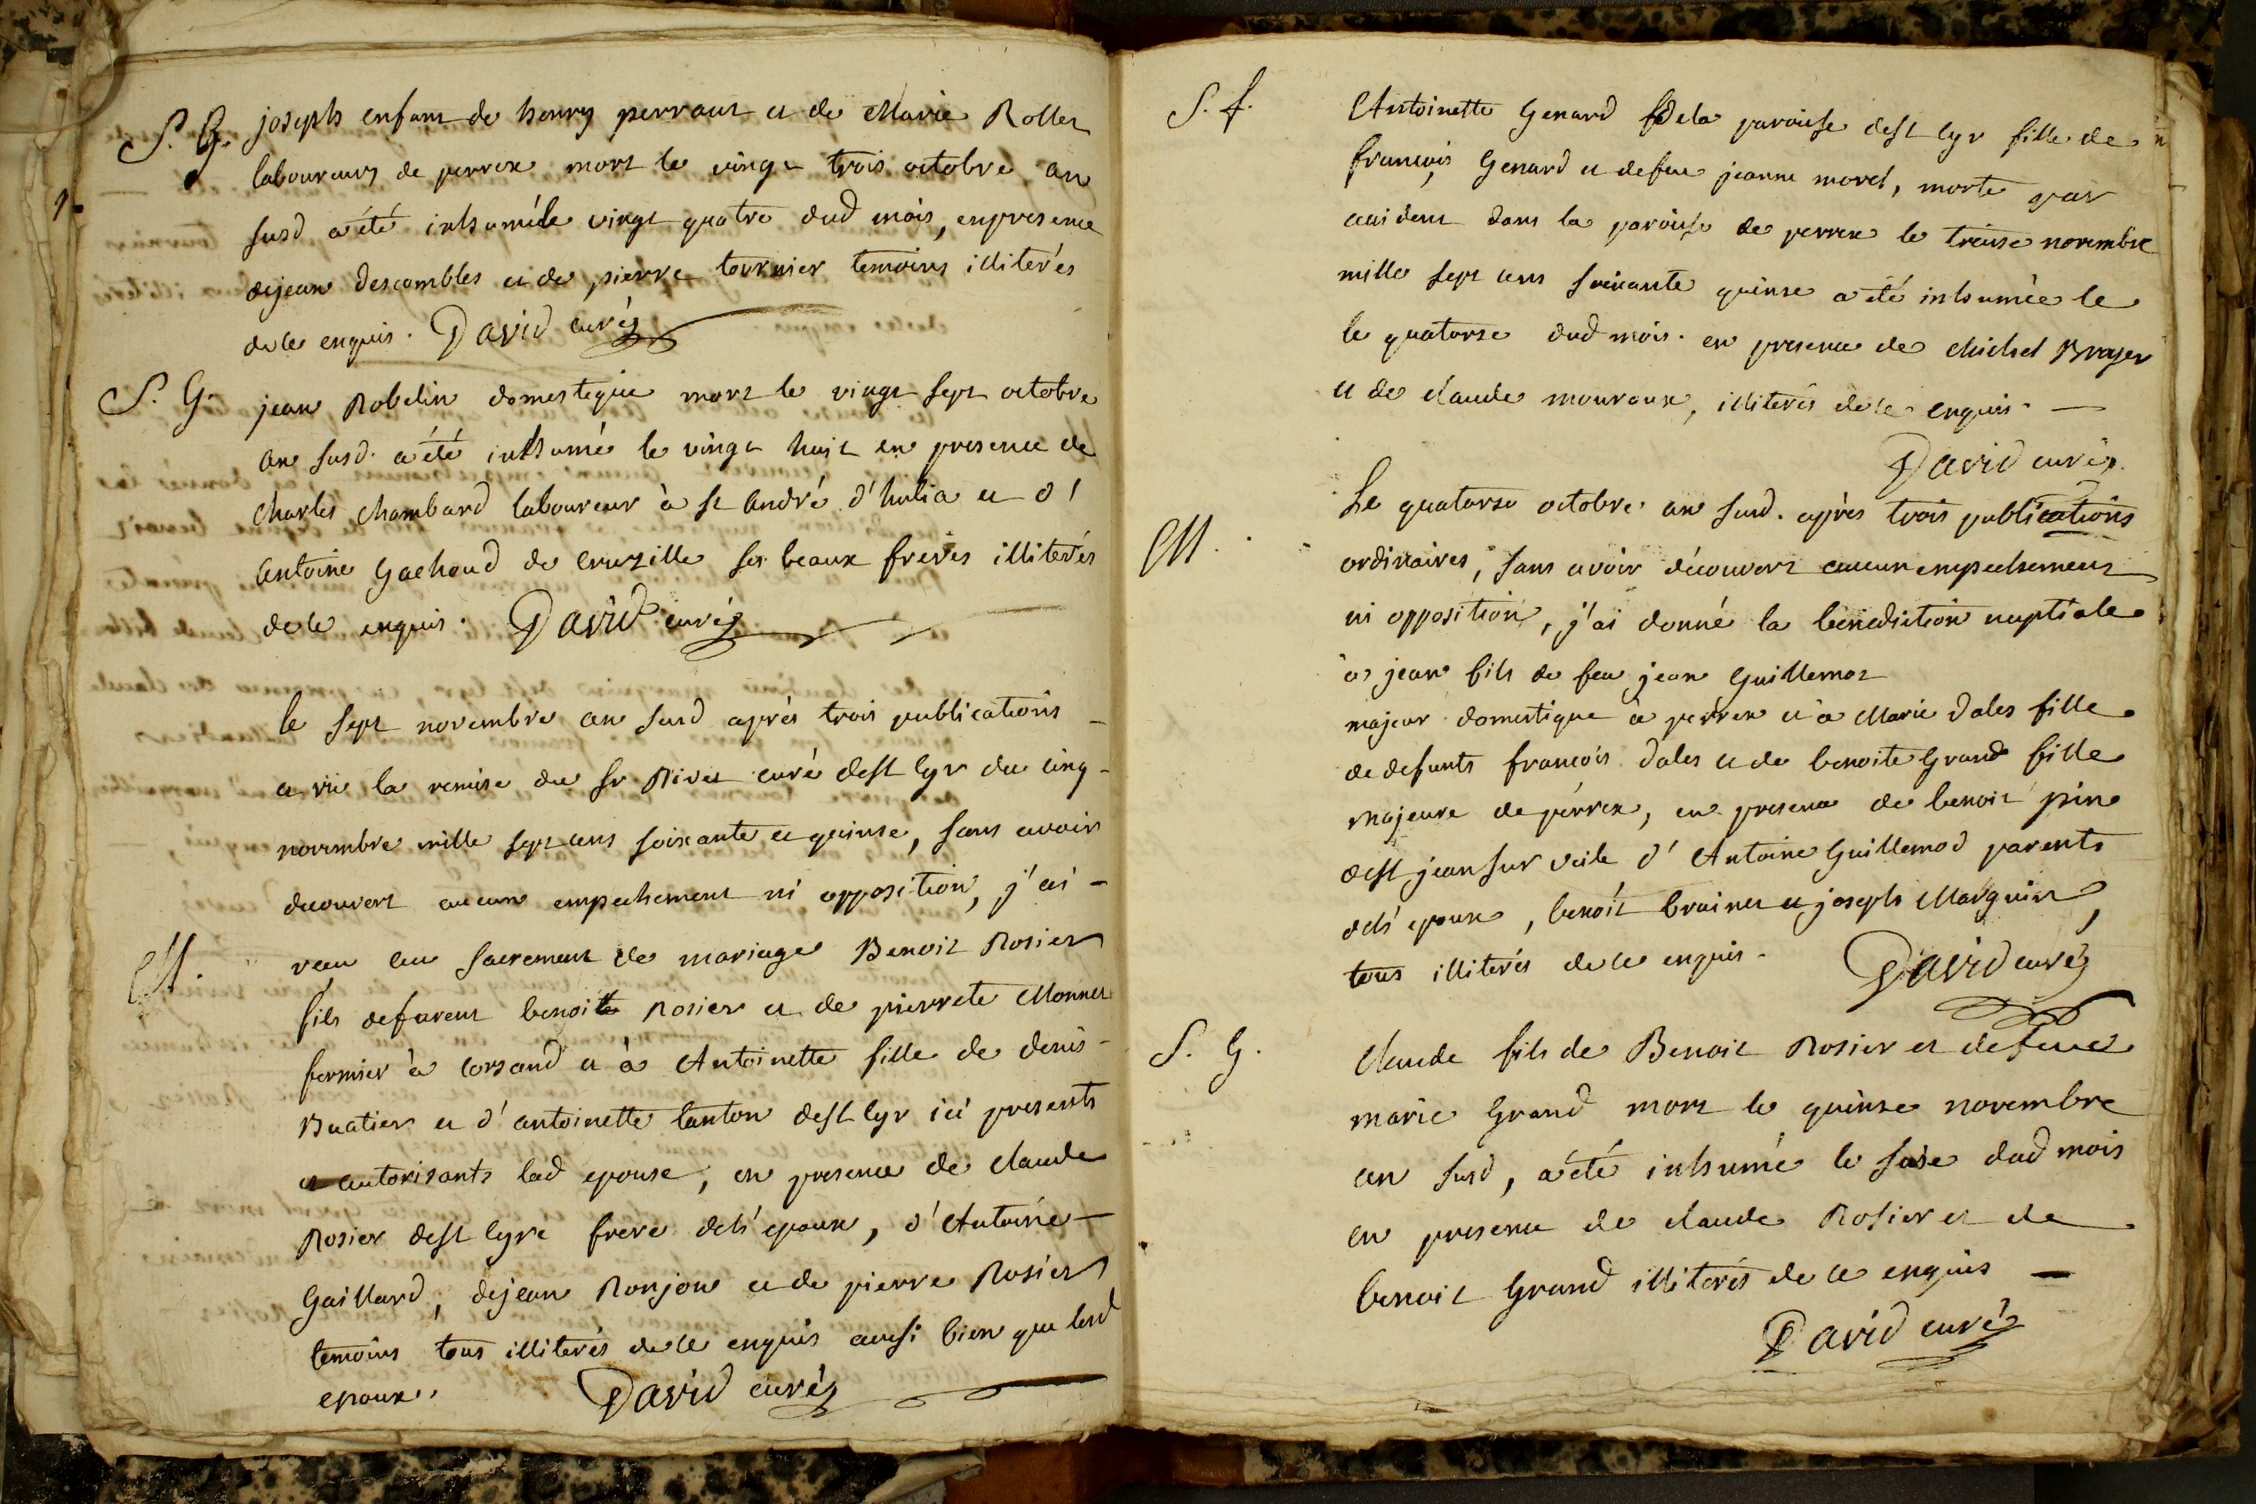 S. G. joseph enfant de henry perraut et de Marie Rollet
laboureurs de perrex mort le vingt trois octobre an
susd a été inhumé le vingt quatre dud mois, en presence
de jean Descombles et de pierre tournier temoins illiterés
de ce enquis. David curé
S. G. jean Robelin domestique mort le vingt sept octobre
an susd. a été inhumé le vingt huit en presence de
Charles Chambard laboureur à st André d'hulia et d'
antoine Gachoud de Cruzille ses beaux freres illiterés
de ce enquis. David curé
le sept novembre an susd après trois publications
et vü la remise du Sr Rivet curé de st Cyr du cinq
novembre mille sept cens soixante et quinse, sans avoir
decouvert aucun empechement ni opposition, j'ai
M. recu au sacrement de mariage Benoit Rosier
fils de furent benoit Rosier et de pierrete Monnet
fermier à Corsand et à Antoinette fille de denis
Buatier et d'antoinette tanton de st Cyr ici presents
et autorisants lad epouse, en presence de claude
Rosier de st Cyre frere dels' epoux, d'Antoine
Gaillard, de jean Ronjon et de pierre Rosier
temoins tous illiterés de ce enquis aussi bien que lesd
epoux. David curé
S. f. Antoinette Genard de la paroisse de st Cyr fille de
francois Genard et de feue jeanne morel, morte par
accident dans la paroisse de perrex le treise novembre
mille sept cens soixante quinse a été inhumée le
le quatorse dud mois. en presence de Michel Broyer
et de claude mouroux, illiterés de ce enquis.
David curé
M. Le quatorse octobre an susd. après trois publications
ordinaires, sans avoir découvert aucun empechement
ni opposition, j'ai donné la bénédiction nuptiale
à jean fils de feu jean Guillemot
majeur domestique à perrex et à Marie dales fille
de defunts francois dales et de benoite Grand fille
majeure de perrex, en presence de benoit pin
de st jean sur veile d'Antoine Guillemod parents
dels' epoux, benoit brainet et joseph Marguin,
tous illiterés de ce enquis. David curé
S. G. Claude fils de Benoit Rosier et de feue
marie Grand mort le quinse novembre
an susd, a été inhumé le saise dud mois
en presence de claude Rosier et de
benoit Grand illiterés de ce enquis
David curé